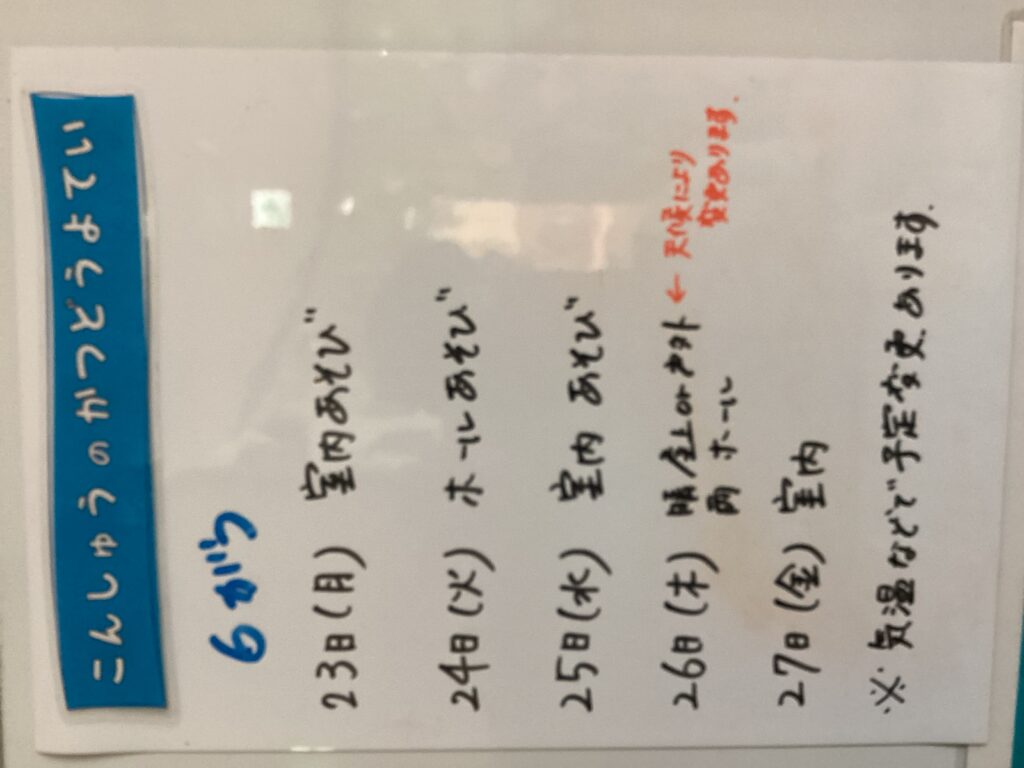 こんしゅうのかつどうよてい
6がつ
23日(月) 室内あそび
24日(火) ホールあそび
25日(水) 室内 あそび
26日(木) 晴 屋上or戸外 ← 天候により
雨 ホール 変更あります.
27日(金) 室内
※ 気温などで予定変更あります.